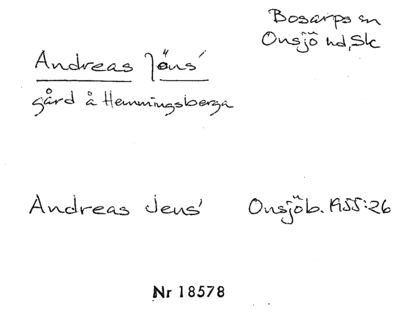 Bosarps sn
Onsjö hd, Sk
Andreas Jöns'
gård å Hemmingsberga
Andreas Jens' Onsjöb. 1955:26
Nr 18578